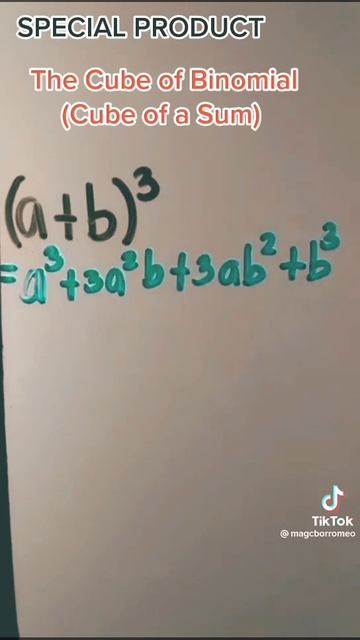 SPECIAL PRODUCT
The Cube of Binomial
(Cube of a Sum)
(a+b)³
=a³+3a²b+3ab²+b³
TikTok
@magcborromeo